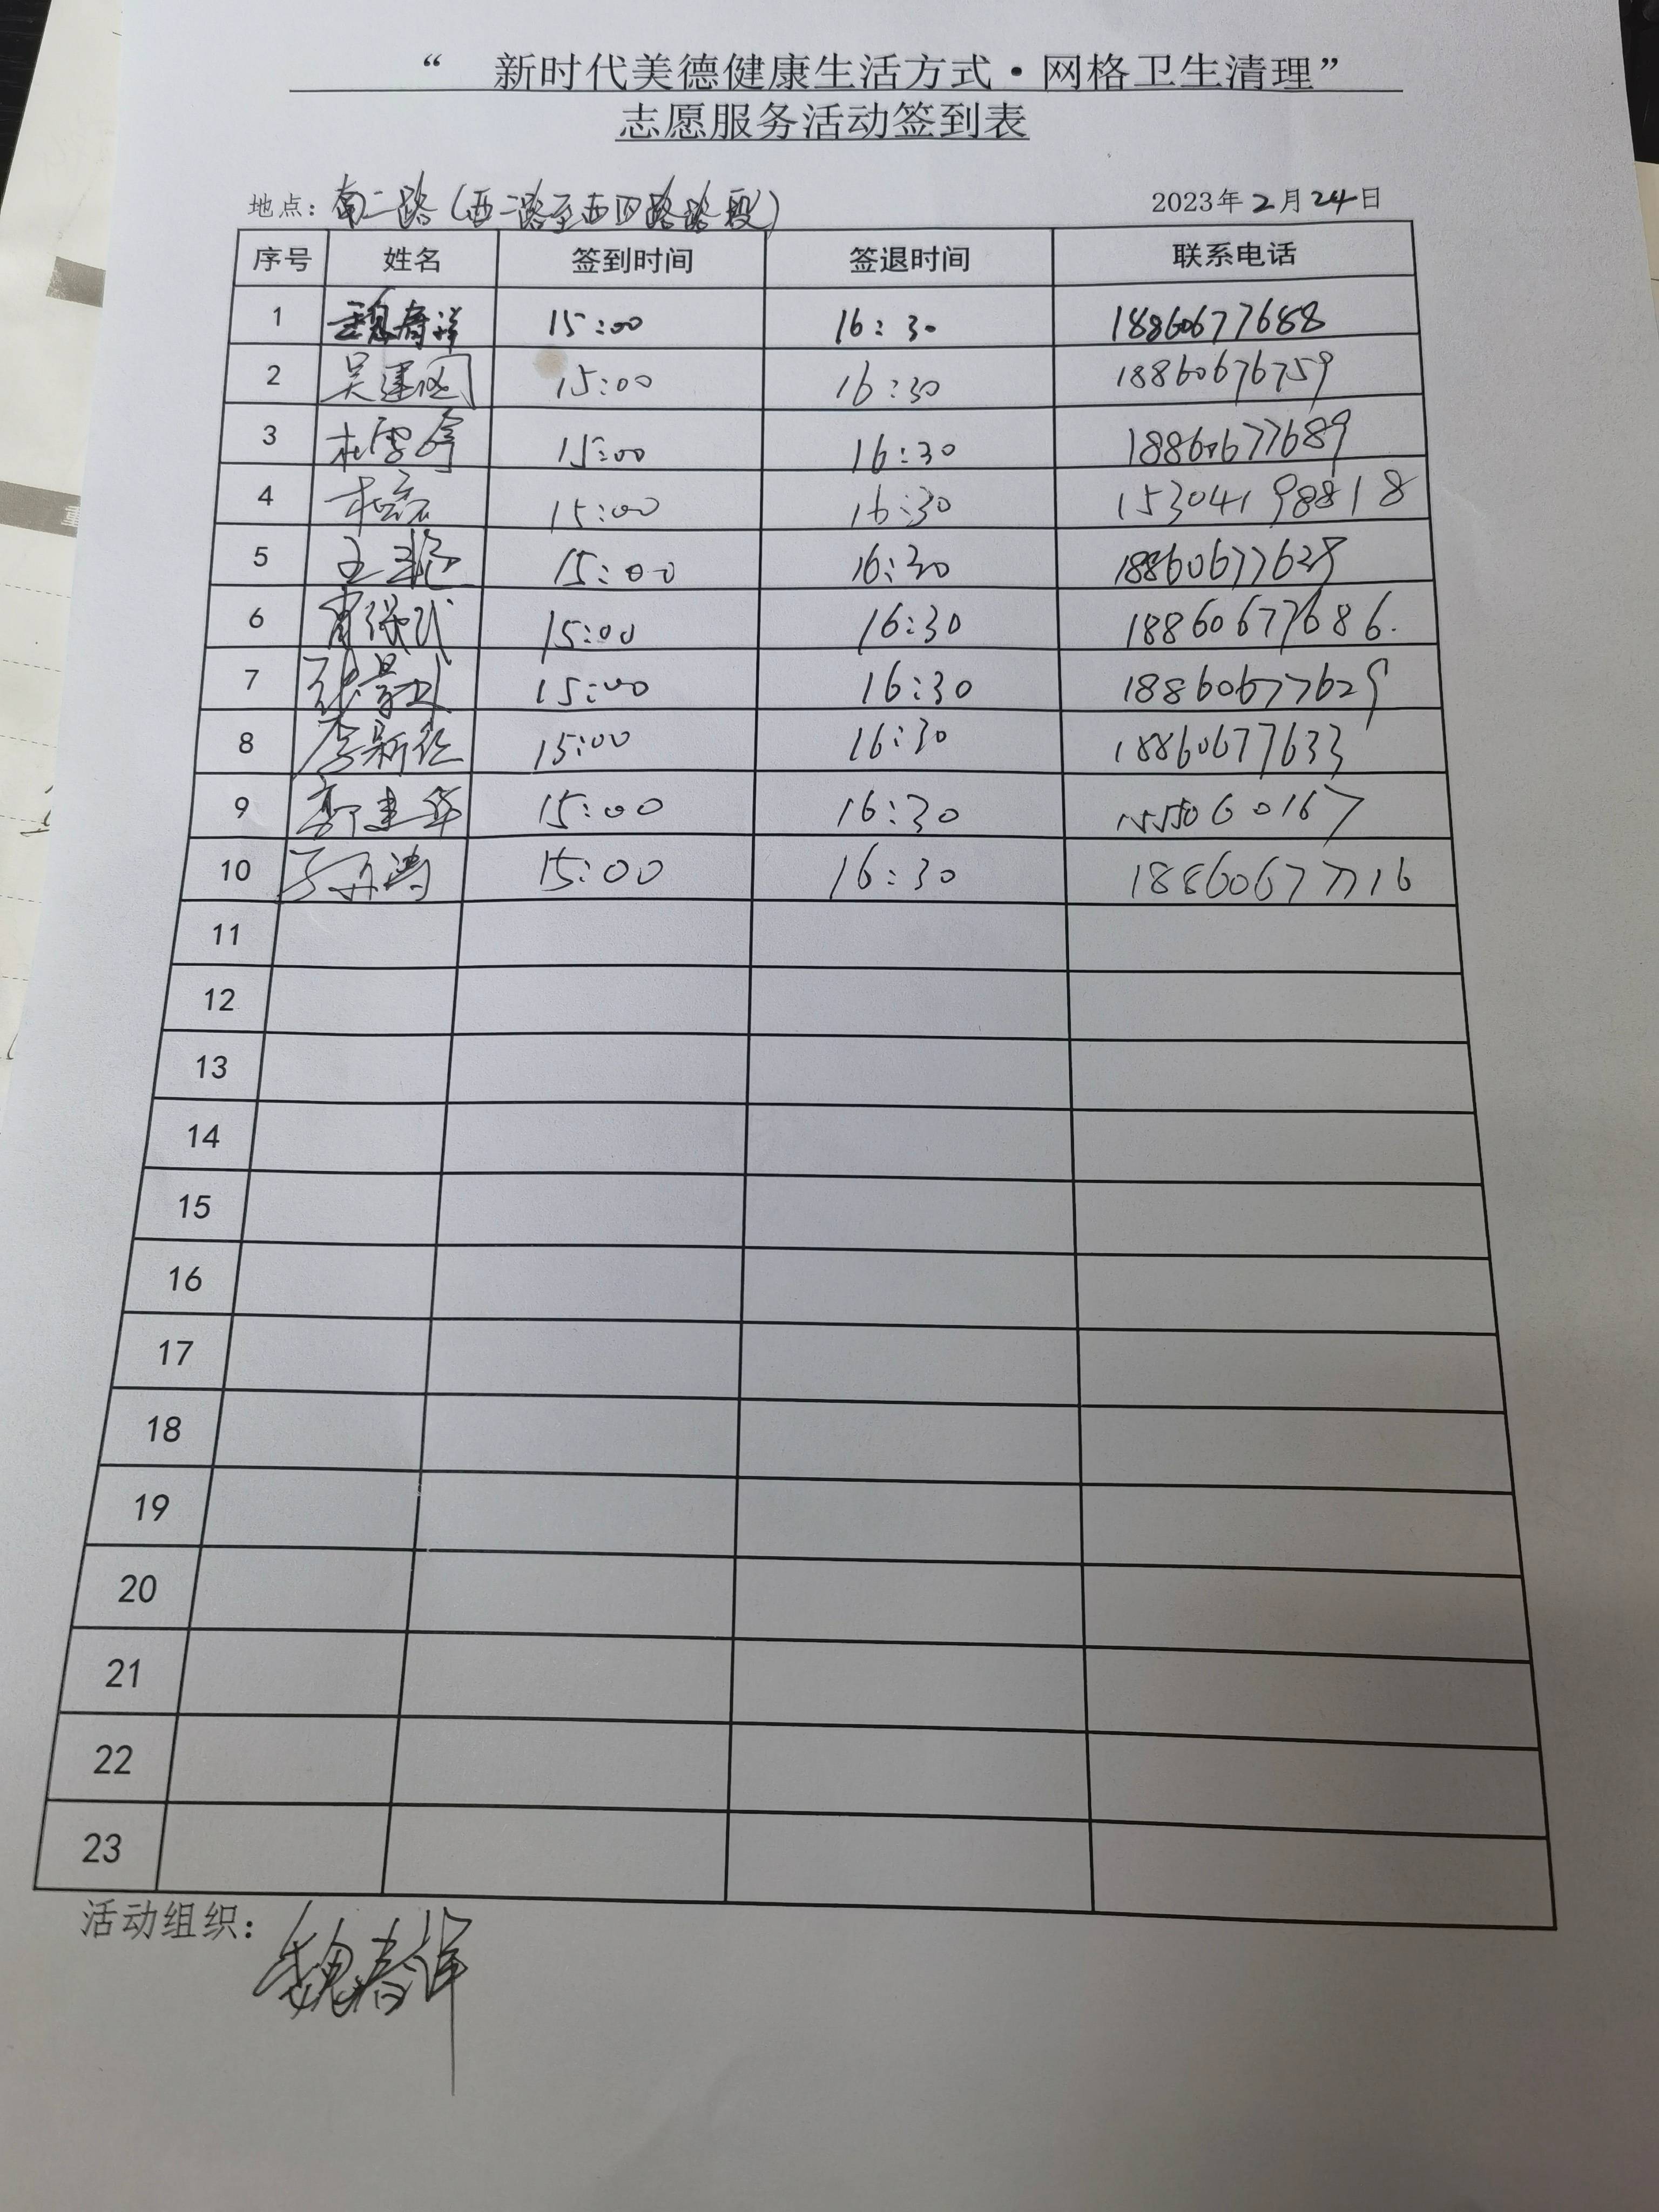 “ 新时代美德健康生活方式·网格卫生清理”
志愿服务活动签到表
地点: 南二路(西二路至西四路路段) 2023年2月24日
序号 姓名 签到时间 签退时间 联系电话
1 魏春祥 15:00 16:30 18860677688
2 吴建国 15:00 16:30 18860676759
3 15:00 16:30 18860677689
4 15:00 16:30 15304198818
5 15:00 16:30
6 肖保武 15:00 16:30 18860677686.
7 15:00 16:30 18860677629
8 李新征 15:00 16:30 18860677633
9 郭建华 15:00 16:30
10 15:00 16:30 18860677716
11
12
13
14
15
16
17
18
19
20
21
22
23
活动组织: 魏春祥